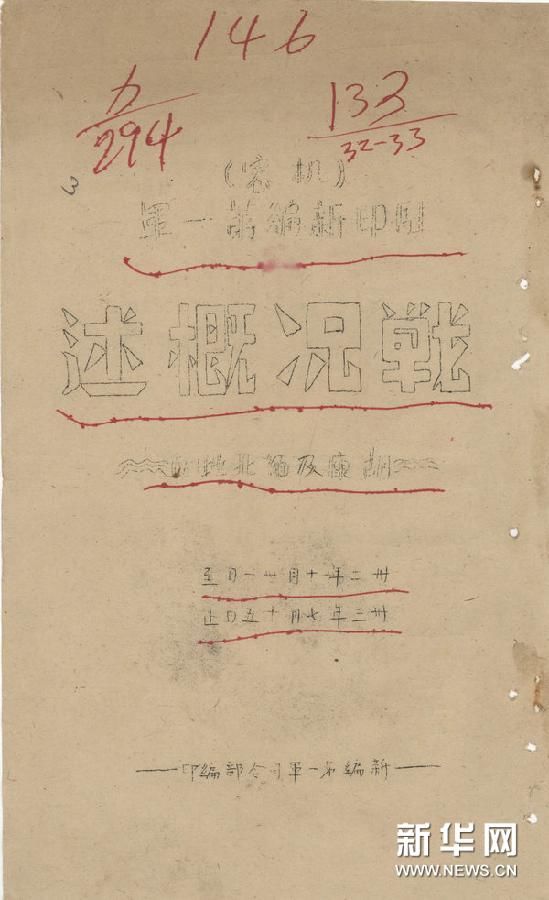 146
力
294
133
32-33
3
(机密)
駐印新編第一軍
戦况概述
胡康及緬北地
卅二年十月廿一日至
卅三年七月十五日止
新編第一軍司令部編印
新华网
WWW.NEWS.CN